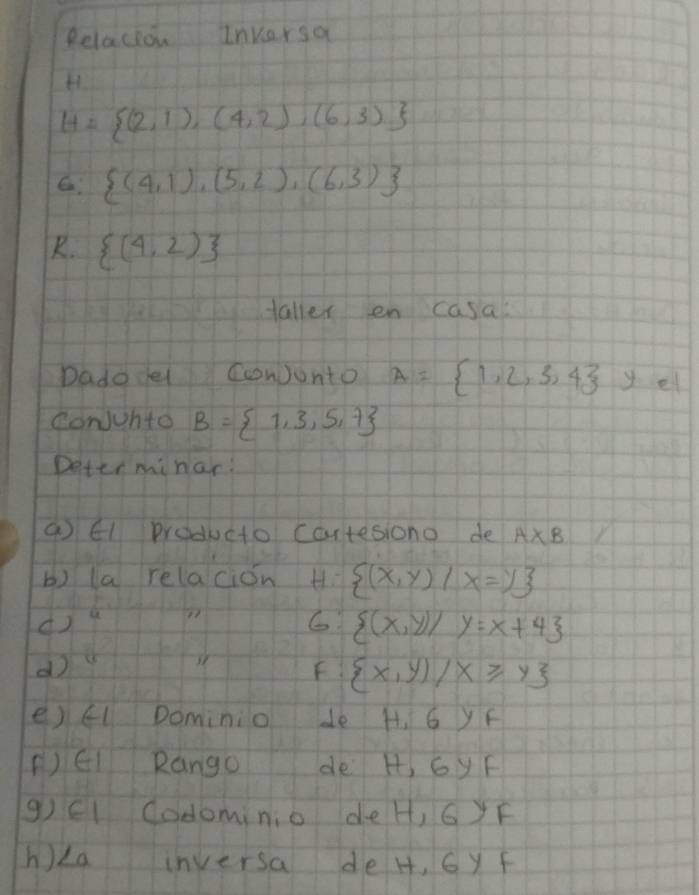 Relación Inversa
H
H = {(2,1), (4,2), (6,3)}
G: {(4,1), (5,2), (6,3)}
R. {(4,2)}
taller en casa:
Dado el Conjunto A = {1,2,3,4} y el
conjunto B = {1,3,5,7}
Determinar:
a) El producto cartesiono de AXB
b) la relación H: {(x,y) / x=y}
c) " " G: {(x,y) / y=x+4}
d) " " F: {x,y) / x ≥ y}
e) El Dominio de H, G y F
f) El Rango de H, G y F
g) El Codominio de H, G y F
h) La inversa de H, G y F